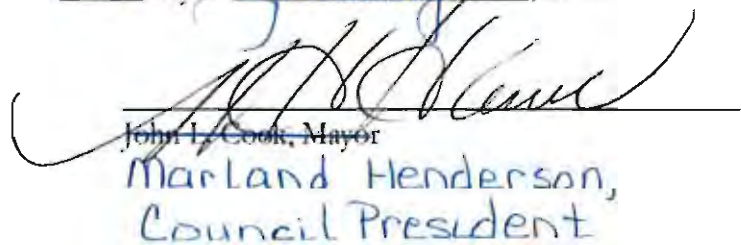 John L. Cook, Mayor
Marland Henderson,
Council President